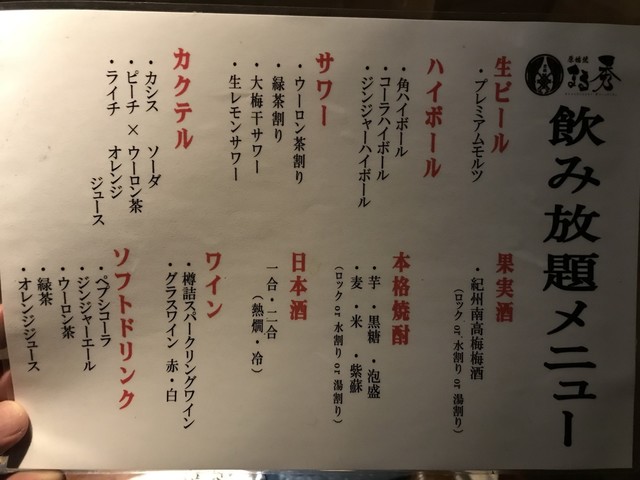 居酒屋
まる秀
飲み放題メニュー
生ビール
・プレミアムモルツ
ハイボール
・角ハイボール
・コーラハイボール
・ジンジャーハイボール
サワー
・ウーロン茶割り
・緑茶割り
・大梅干サワー
・生レモンサワー
カクテル
・カシス ソーダ
・ピーチ × ウーロン茶
・ライチ オレンジ
ジュース
果実酒
・紀州南高梅梅酒
(ロック or 水割り or 湯割り)
本格焼酎
・芋・黒糖・泡盛
・麦・米・紫蘇
(ロック or 水割り or 湯割り)
日本酒
一合・二合
(熱燗・冷)
ワイン
・樽詰スパークリングワイン
・グラスワイン 赤・白
ソフトドリンク
・ペプシコーラ
・ジンジャーエール
・ウーロン茶
・緑茶
・オレンジジュース